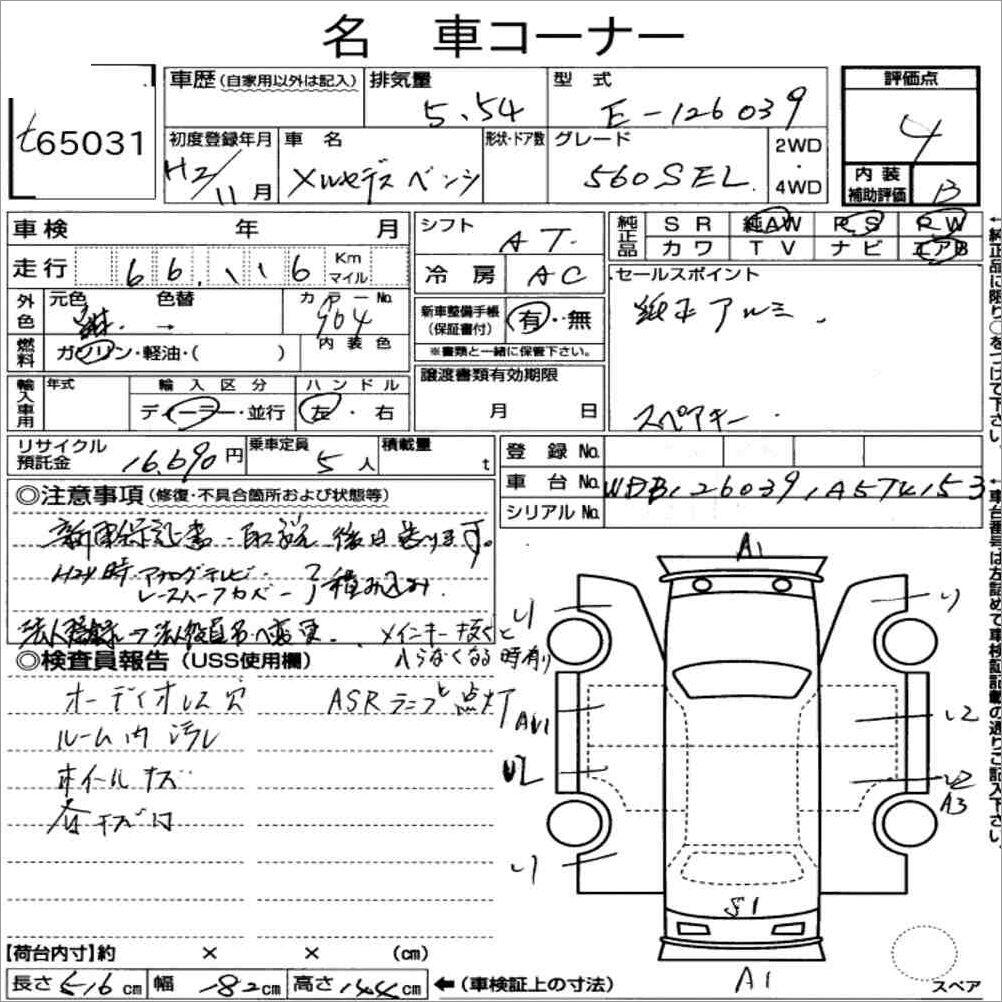 名 車コーナー
t65031
車歴(自家用以外は記入)
排気量
5.54
型式
E-126039
評価点
4
初度登録年月
H2/11月
車名
メルセデスベンツ
形状・ドア数
グレード
560SEL
2WD
・
4WD
内装
補助評価
B
車検 年 月
走行 66,116 Km
マイル
シフト
AT.
冷房 AC
純正品
SR 純AW R,S R,W
カワ TV ナビ エアB
セールスポイント
純正アルミ.
スペアキー.
外色
元色 色替 カラーNo.
→ 904
内装色
燃料
ガソリン・軽油・( )
新車整備手帳
(保証書付)
有・無
※書類と一緒に保管下さい。
輸入車用
年式
輸入区分
ディーラー・並行
ハンドル
左・右
譲渡書類有効期限
月 日
リサイクル
預託金
16,690円
乗車定員
5人
積載量
t
登録No.
車台No. WDB1260391A574153
シリアルNo.
◎注意事項(修復・不具合箇所および状態等)
新車保証書・取説 後日送ります。
H24時・アナログテレビ・
レースハーフカバー 積み込み.
→法人役員名へ変更. メインキー抜くと
入らなくなる時有り
◎検査員報告(USS使用欄)
オーディオレス穴 ASRランプ点灯
ルーム内汚レ
ホイールキズ
各キズ凹
A1
AU1
U2
A3
S1
A1
スペア
【荷台内寸】約 × × (cm)
長さ516cm 幅182cm 高さ144cm ←(車検証上の寸法)
←純正品に限り○をつけて下さい。
←車台番号は左詰めで車検証記載の通りご記入下さい。